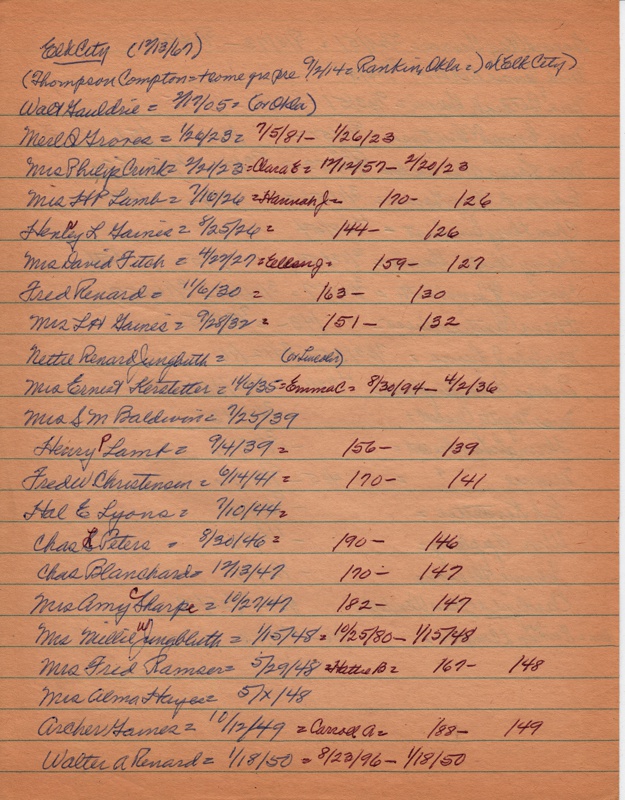 Elk City (12/13/67)
(Thompson Compton = + some grs pre 9/2/14 = Rankin, Okla =) or (Elk City)
Walt Gauldrie = 2/17/05 = (or Okla)
Merl D Groves = 1/26/23 = 7/5/81 - 1/26/23
Mrs Philip Crink = 2/21/23 = Clara E = 12/12/57 - 2/20/23
Mrs H P Lamb = 7/16/26 = Hannah J = /70 - /26
Henley L Gaines = 8/25/26 = /44 - /26
Mrs David Fitch = 4/27/27 = Ellen J = /59 - /27
Fred Renard = 11/6/30 = /63 - /30
Mrs L H Gaines = 9/28/32 = /51 - /32
Nettie Renard Jungbluth = (or Lincoln)
Mrs Ernest Kerstetter = 4/6/35 = Emma C = 8/30/94 - 4/2/36
Mrs S M Baldwin = 7/25/39
Henry P Lamb = 9/4/39 = /56 - /39
Fred W Christensen = 6/14/41 = /70 - /41
Hal E Lyons = 7/10/44 =
Chas E Peters = 8/30/46 = /90 - /46
Chas Blanchard = 12/13/47 /70 - /47
Mrs Amy C Tharpe = 10/27/47 /82 - /47
Mrs Millie W Jungbluth = 1/15/48 = 10/25/80 - 1/15/48
Mrs Fred Ramser = 5/29/48 = Hattie B = /67 - /48
Mrs Alma Hayes = 5/x/48
Archer Gaines = 10/12/49 = Carroll A = /88 - /49
Walter A Renard = 1/18/50 = 8/23/96 - 1/18/50